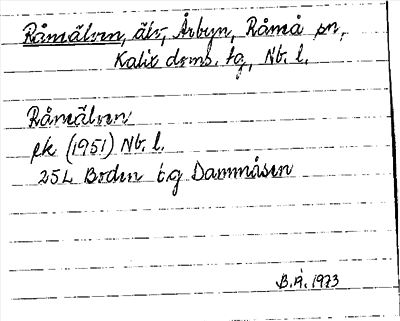 Råmälven, älv, Årbyn, Råneå sn,
Kalix doms. tg, Nb. l.
Råneälven
ek (1951) Nb. l.
25L Boden t.g Dammåsen
B.Å. 1973